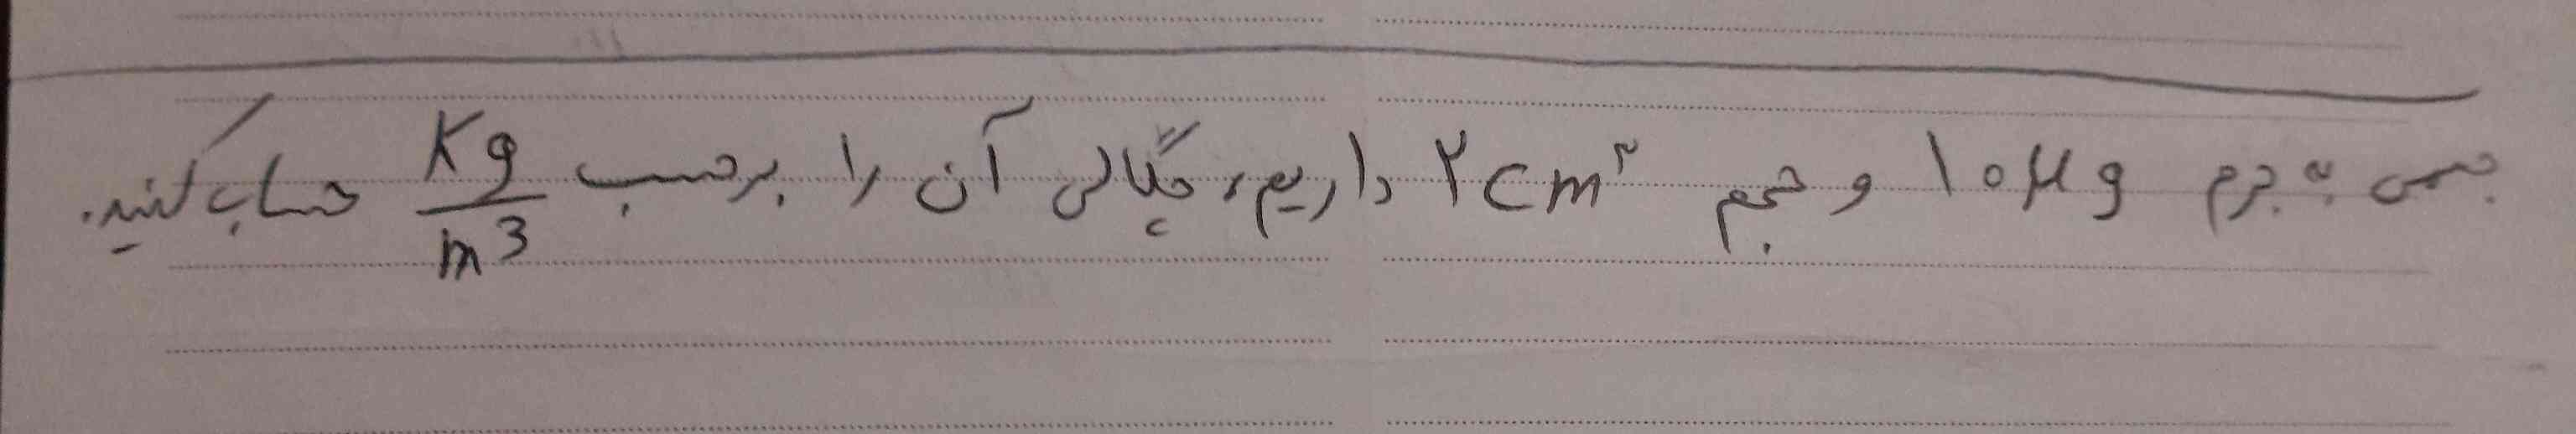 جسمی به جرم 10 μg و حجم ۲ cm³ داریم، چگالی آن را برحسب Kg/m³ حساب کنید.